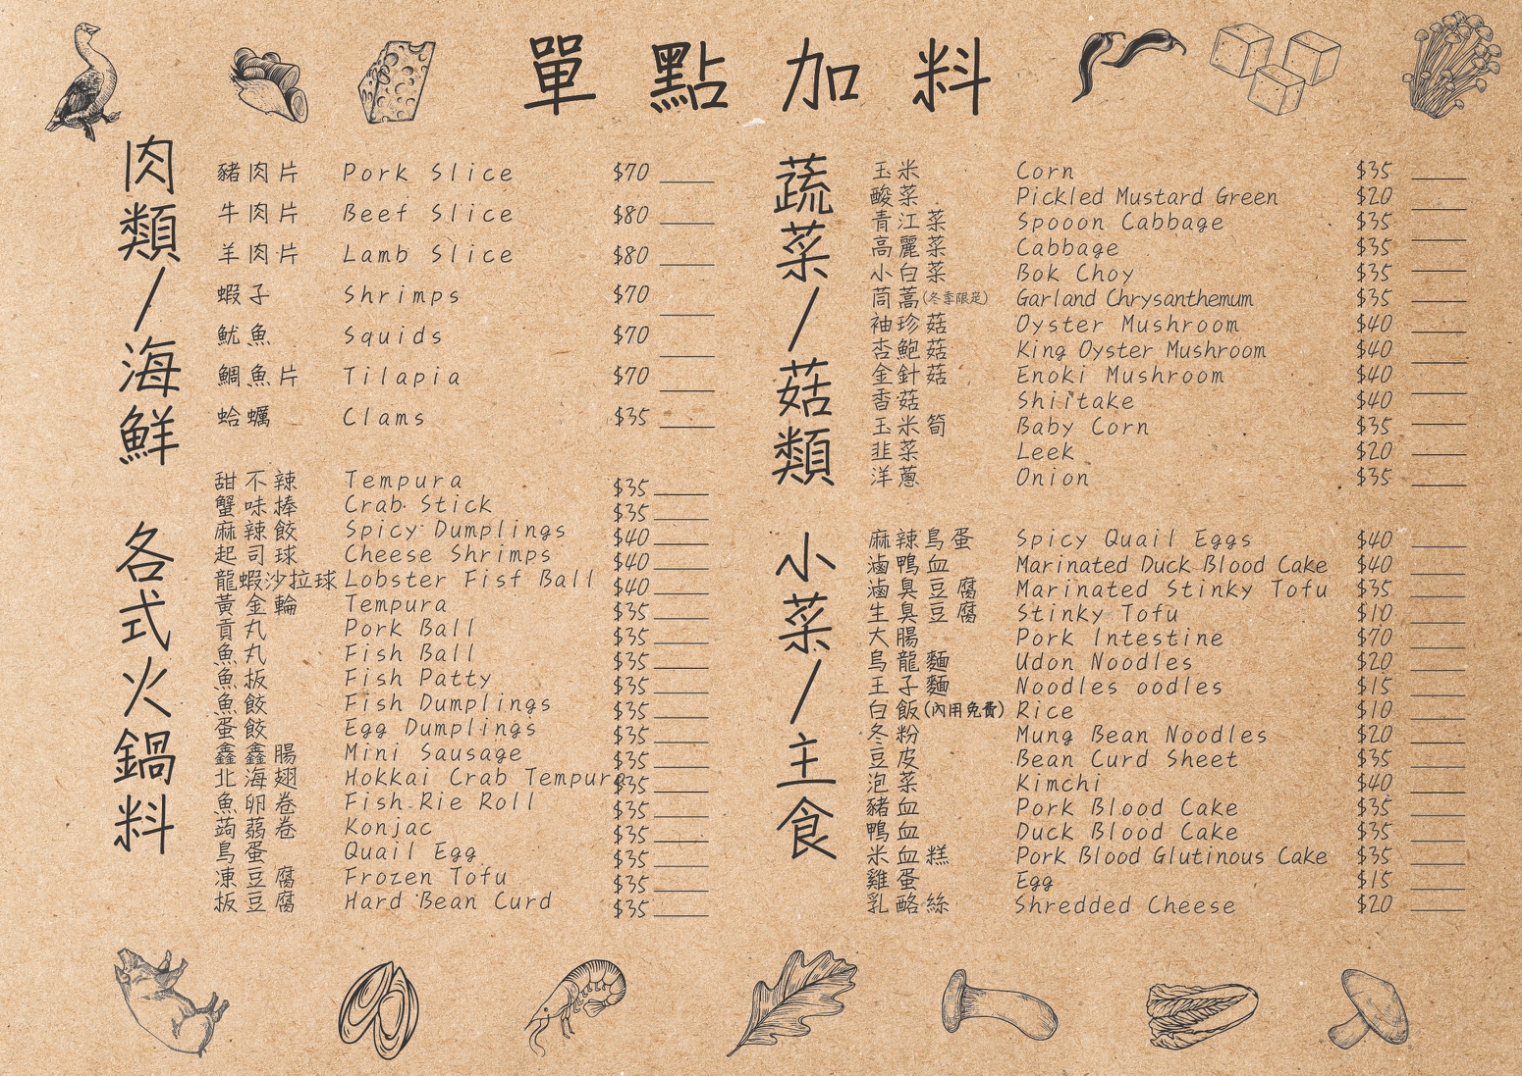 單點加料
肉類/海鮮
豬肉片 Pork Slice $70
牛肉片 Beef Slice $80
羊肉片 Lamb Slice $80
蝦子 Shrimps $70
魷魚 Squids $70
鯛魚片 Tilapia $70
蛤蠣 Clams $35
各式火鍋料
甜不辣 Tempura $35
蟹味捧 Crab Stick $35
麻辣餃 Spicy Dumplings $40
起司球 Cheese Shrimps $40
龍蝦沙拉球 Lobster Fisf Ball $40
黃金輪 Tempura $35
貢丸 Pork Ball $35
魚丸 Fish Ball $35
魚板 Fish Patty $35
魚餃 Fish Dumplings $35
蛋餃 Egg Dumplings $35
鑫鑫腸 Mini Sausage $35
北海翅 Hokkai Crab Tempura $35
魚卵卷 Fish Rie Roll $35
蒟蒻卷 Konjac $35
鳥蛋 Quail Egg $35
凍豆腐 Frozen Tofu $35
板豆腐 Hard Bean Curd $35
蔬菜/菇類
玉米 Corn $35
酸菜 Pickled Mustard Green $20
青江菜 Spooon Cabbage $35
高麗菜 Cabbage $35
小白菜 Bok Choy $35
茼蒿(冬季限定) Garland Chrysanthemum $35
袖珍菇 Oyster Mushroom $40
杏鮑菇 King Oyster Mushroom $40
金針菇 Enoki Mushroom $40
香菇 Shiitake $40
玉米筍 Baby Corn $35
韭菜 Leek $20
洋蔥 Onion $35
小菜/主食
麻辣鳥蛋 Spicy Quail Eggs $40
滷鴨血 Marinated Duck Blood Cake $40
滷臭豆腐 Marinated Stinky Tofu $35
生臭豆腐 Stinky Tofu $10
大腸 Pork Intestine $70
烏龍麵 Udon Noodles $20
王子麵 Noodles oodles $15
白飯(內用免費) Rice $10
冬粉 Mung Bean Noodles $20
豆皮 Bean Curd Sheet $35
泡菜 Kimchi $40
豬血 Pork Blood Cake $35
鴨血 Duck Blood Cake $35
米血糕 Pork Blood Glutinous Cake $35
雞蛋 Egg $15
乳酪絲 Shredded Cheese $20